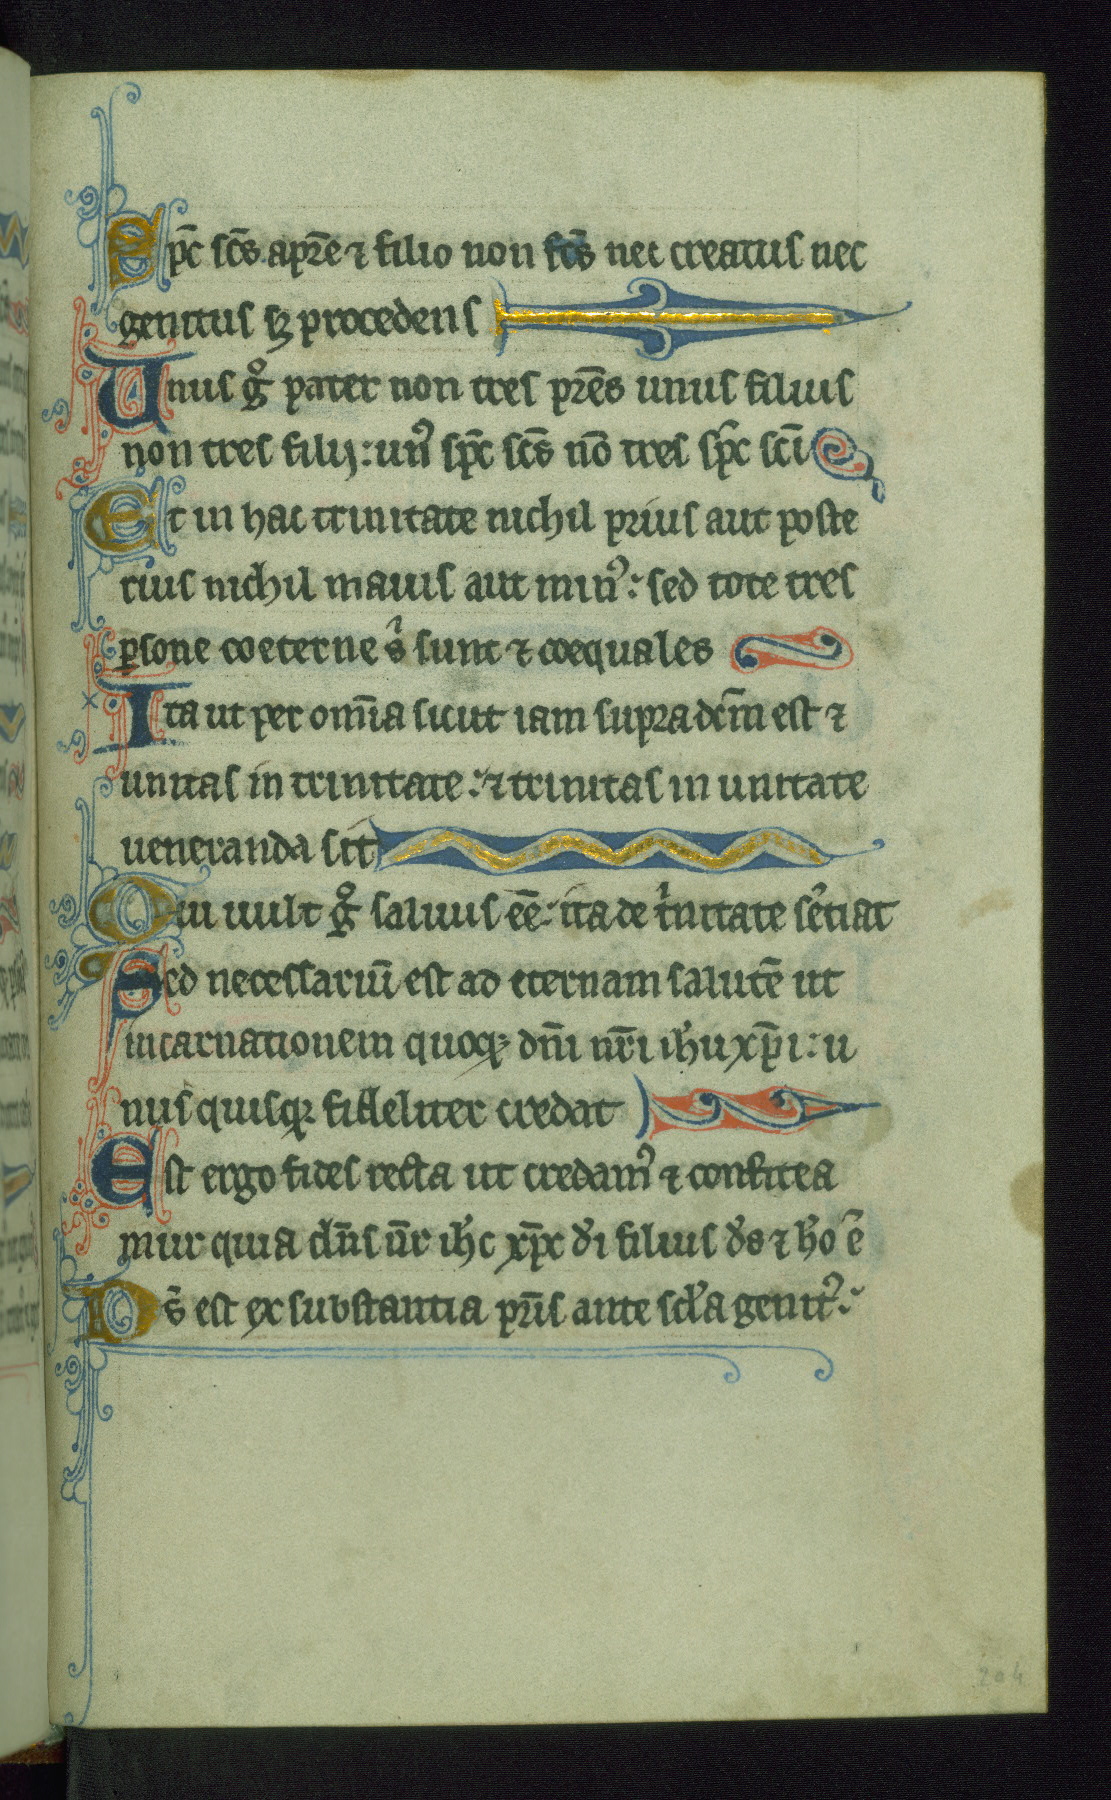 Spc̄ scs̄ a pr̄e ⁊ filio non fcs̄ nec creatus nec
genitus sꝫ procedens
Unus gͦ pater non tres pr̄es unus filius
non tres filij: unꝰ spc̄ scs̄ nō tres spc̄ scī
Et in hac trinitate nichil prius aut poste
rius nichil maius aut minꝰ: sed tote tres
ꝑsone coeterne s̉ sunt ⁊ coequales
Ita ut per om̄ia sicut iam supradc̄m est ⁊
unitas in trinitate: ⁊ trinitas in unitate
ueneranda sit
Qui uult gͦ saluus eē: ita de tͥnitate sētiat
Sed necessariū est ad eternam salutē ut
incarnationem quoqꝫ dn̄i nr̄i ih̄u xp̄i: u
nus quisqꝫ fideliter credat
Est ergo fides recta ut credamꝰ ⁊ confitea
mur quia dn̄s n̄r ih̄c xp̄c d̄i filius d̄s ⁊ h̄o ē
Ds̄ est ex substantia pr̄is ante scl̄a genitꝰ:
204